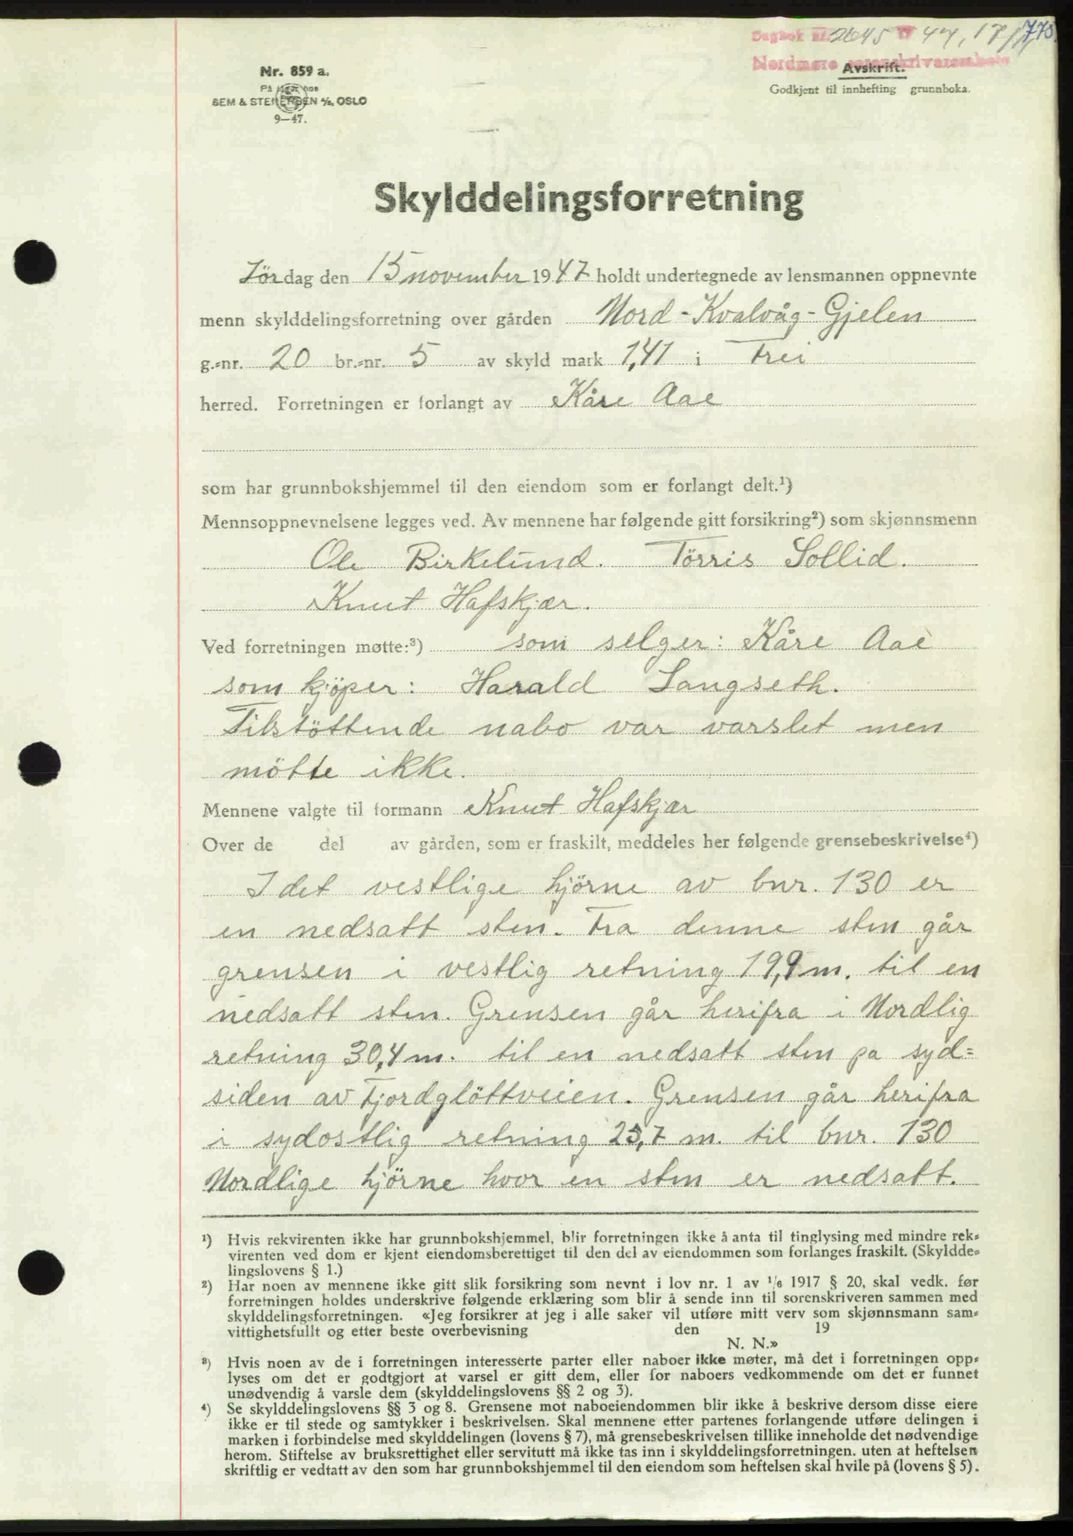 Dagbok nr. 2645 19 47, 17/11 770
Nordmøre sorenskriverembete
Avskrift.
Godkjent til innhefting i grunnboka.
Nr. 859 a.
På lager hos
SEM & STENERSEN A/S, OSLO
9-47.
Skylddelingsforretning
Lördag den 15 november 1947 holdt undertegnede av lensmannen oppnevnte
menn skylddelingsforretning over gården Nord-Kvalvåg-Gjelen
g.-nr. 20 br.-nr. 5 av skyld mark 1,41 i Frei
herred. Forretningen er forlangt av Kåre Aae
som har grunnbokshjemmel til den eiendom som er forlangt delt.¹)
Mennsoppnevnelsene legges ved. Av mennene har følgende gitt forsikring²) som skjønnsmenn
Ole Birkelund. Törris Sollid.
Knut Hafskjær.
Ved forretningen møtte:³) som selger: Kåre Aae
som kjöper: Harald Langseth.
Tilstöttende nabo var varslet men
mötte ikke.
Mennene valgte til formann Knut Hafskjær
Over de del av gården, som er fraskilt, meddeles her følgende grensebeskrivelse⁴)
I det vestlige hjörne av bnr. 130 er
en nedsatt sten. Fra denne sten går
grensen i vestlig retning 19,9 m. til en
nedsatt sten. Grensen går herifra i Nordlig
retning 30,4 m. til en nedsatt sten pa syd-
siden av Fjordglöttveien. Grensen går herifra
i sydostlig retning 23,7 m. til bnr. 130
Nordlige hjörne hvor en sten er nedsatt.
¹) Hvis rekvirenten ikke har grunnbokshjemmel, blir forretningen ikke å anta til tinglysing med mindre rek-
virenten ved dom er kjent eiendomsberettiget til den del av eiendommen som forlanges fraskilt. (Skyldde-
lingslovens § 1.)
²) Har noen av mennene ikke gitt slik forsikring som nevnt i lov nr. 1 av 1/6 1917 § 20, skal vedk. før
forretningen holdes underskrive følgende erklæring som blir å sende inn til sorenskriveren sammen med
skylddelingsforretningen. «Jeg forsikrer at jeg i alle saker vil utføre mitt verv som skjønnsmann sam-
vittighetsfullt og etter beste overbevisning den 19
N. N.»
³) Hvis noen av de i forretningen interesserte parter eller naboer ikke møter, må det i forretningen opp-
lyses om det er godtgjort at varsel er gitt dem, eller for naboers vedkommende om det er funnet
unødvendig å varsle dem (skylddelingslovens §§ 2 og 3).
⁴) Se skylddelingslovens §§ 3 og 8. Grensene mot naboeiendommen blir ikke å beskrive dersom disse eiere
ikke er til stede og samtykker i beskrivelsen. Skal mennene etter partenes forlangende utføre delingen i
marken i forbindelse med skylddelingen (lovens § 7), må grensebeskrivelsen tillike inneholde det nødvendige
herom. Stiftelse av bruksrettighet eller servitutt må ikke tas inn i skylddelingsforretningen, uten at heftelsen
skriftlig er vedtatt av den som har grunnbokshjemmel til den eiendom som heftelsen skal hvile på (lovens § 5).